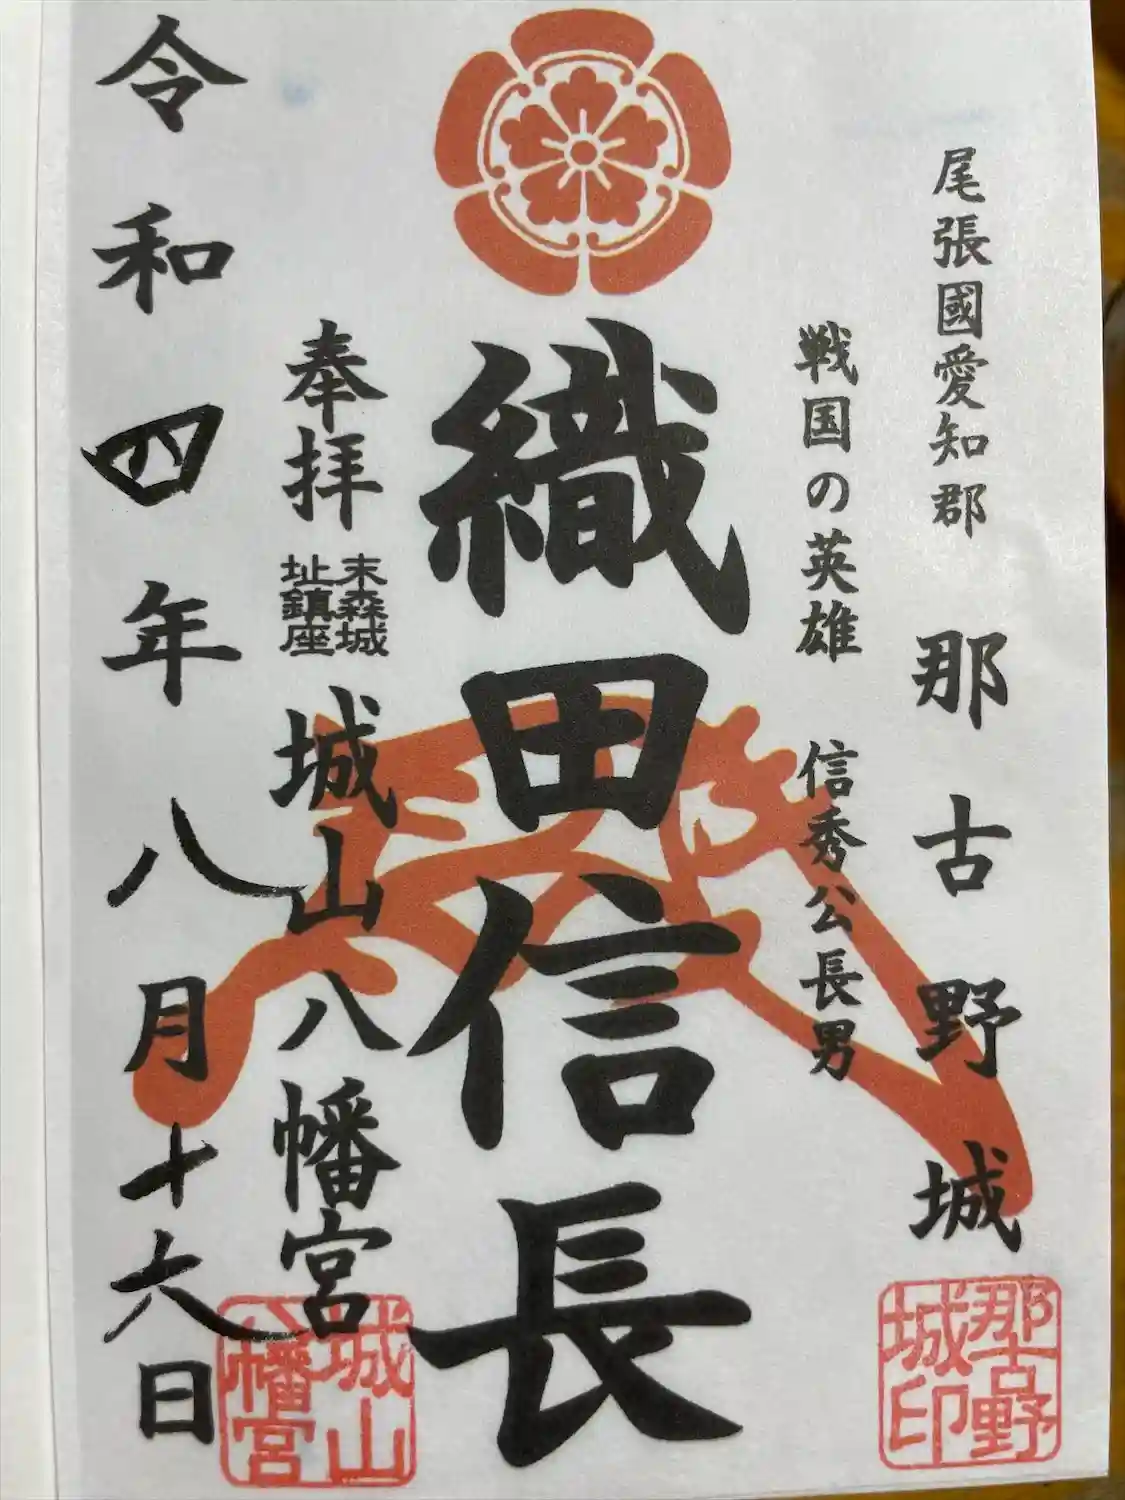 尾張國愛知郡 那古野城
戦国の英雄 信秀公長男
織田信長
奉拝 末森城址鎮座 城山八幡宮
令和四年八月十六日
那古野城印
城山八幡宮